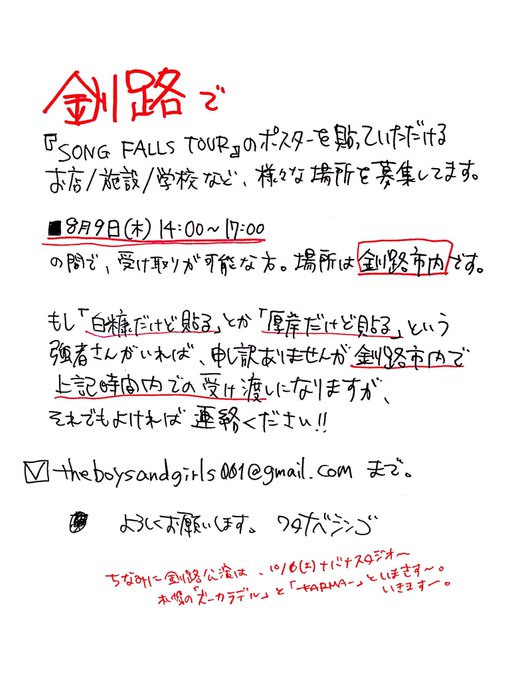 釧路で
『SONG FALLS TOUR』のポスターを貼っていただける
お店/施設/学校など、様々な場所を募集してます。
■8月9日(木) 14:00〜17:00
の間で、受け取りが可能な方。場所は釧路市内です。
もし「白糠だけど貼る」とか「厚岸だけど貼る」という
強者さんがいれば、申し訳ありませんが釧路市内で
上記時間内での受け渡しになりますが、
それでもよければ連絡ください!!
theboysandgirls001@gmail.com まで。
よろしくお願いします。 ワタナベシンゴ
ちなみに釧路公演は、10/6(土)ナバナスタジオ〜
札幌の「ズーカラデル」と「-KARMA-」といきます〜。
いきます〜。